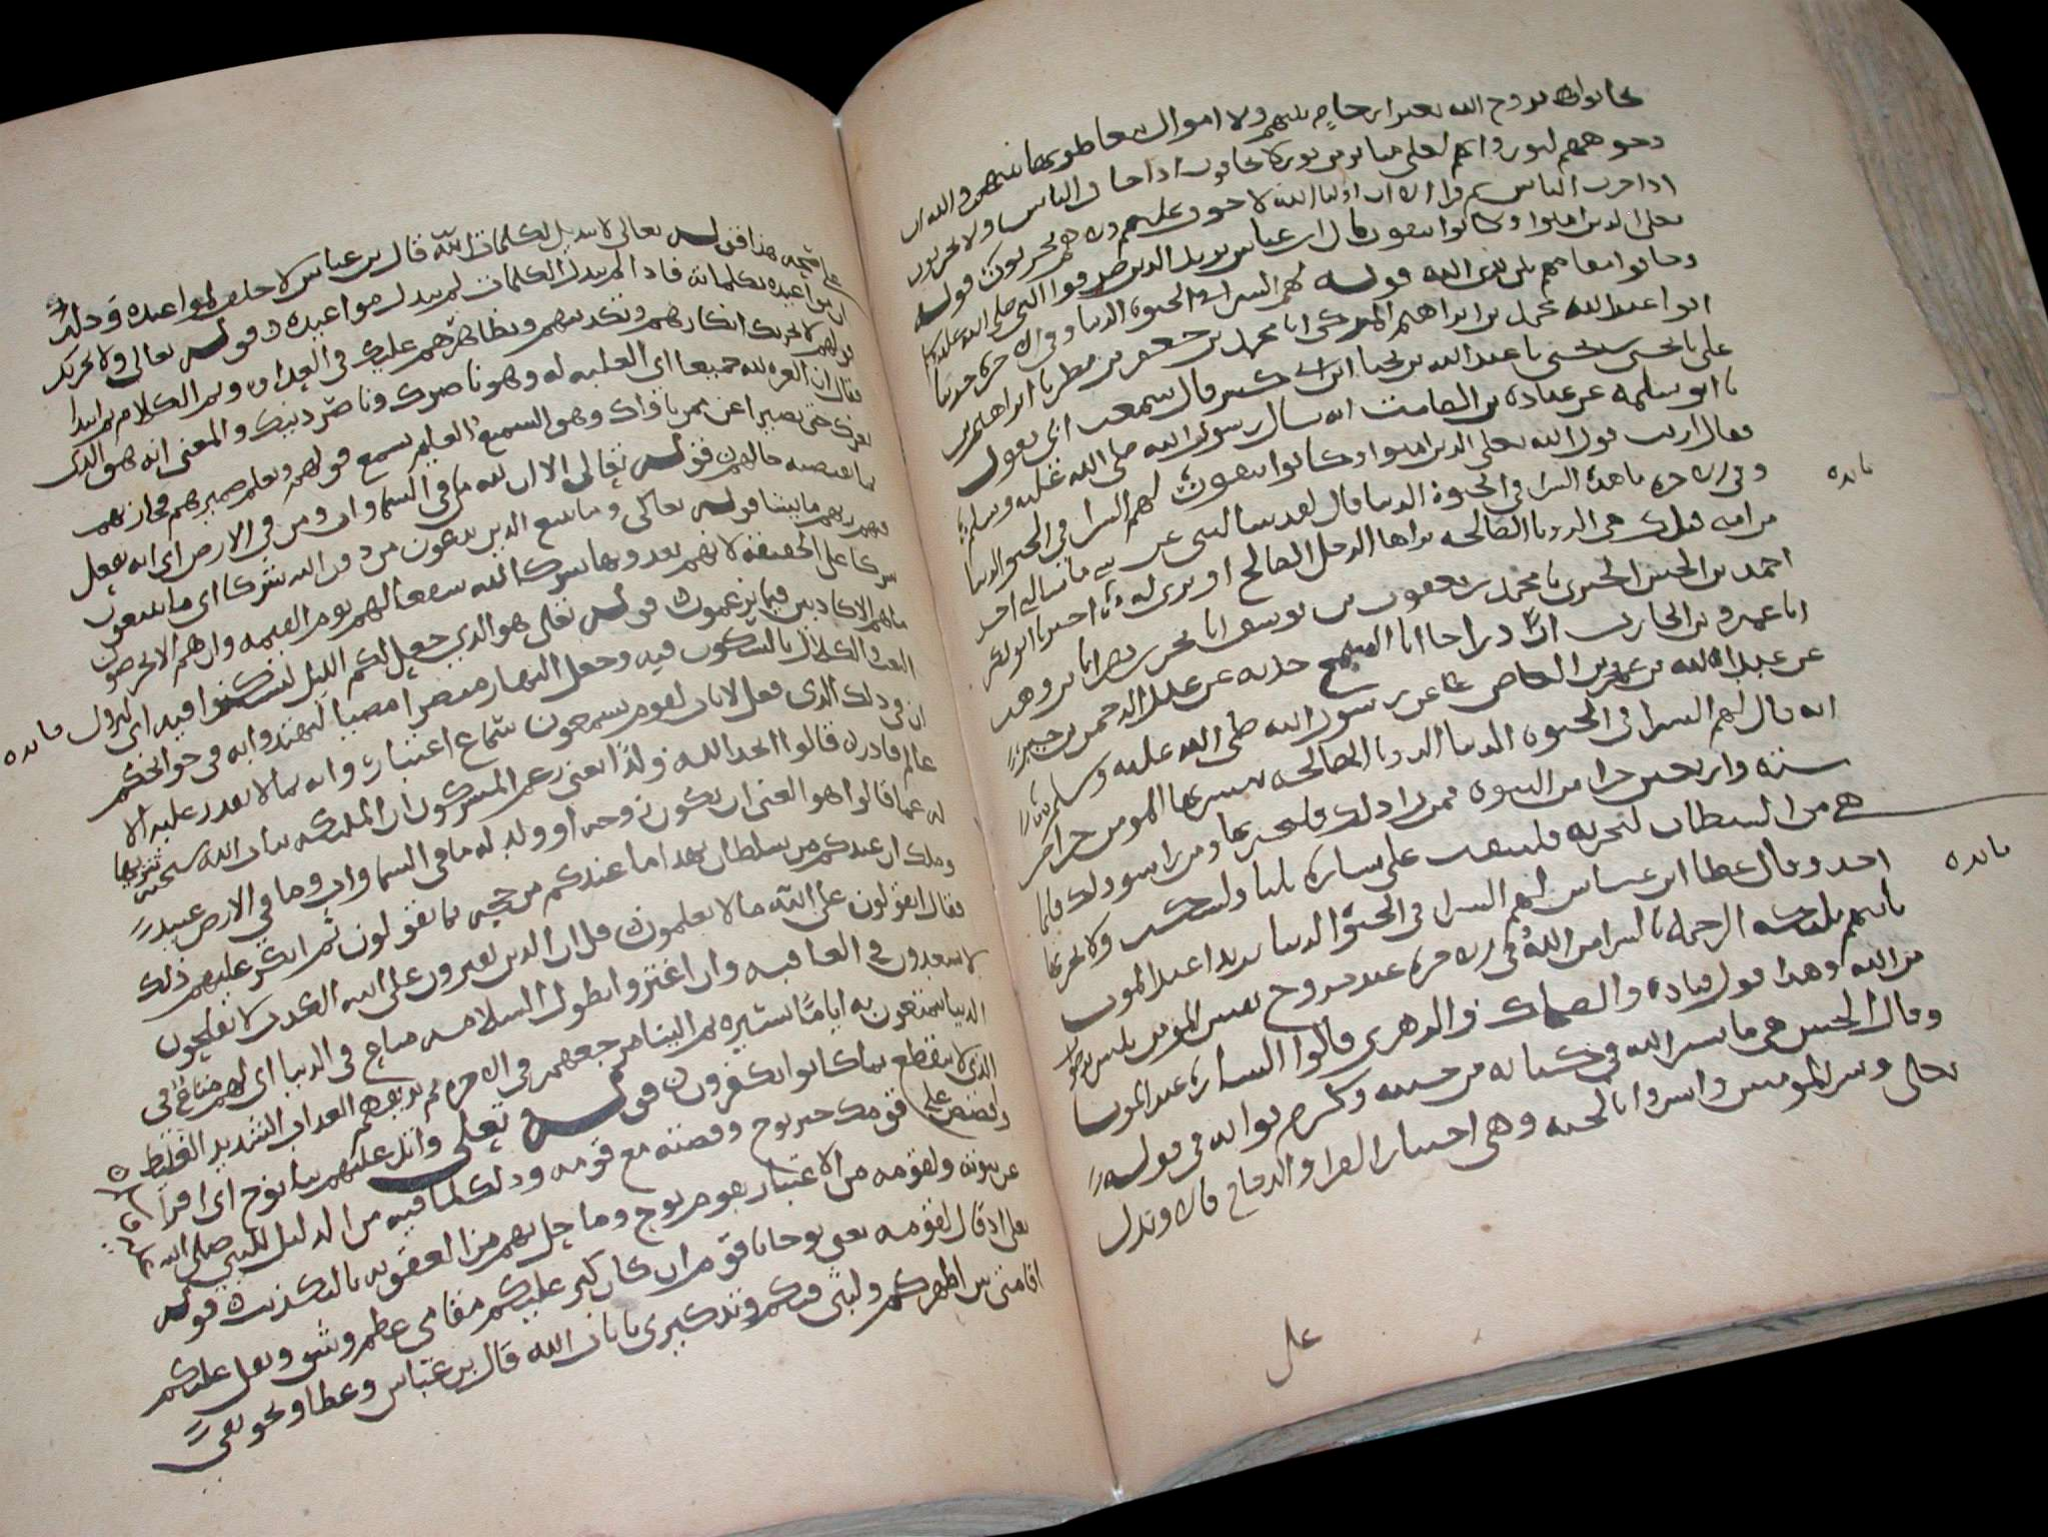 تحابوا بروح الله بغير ارحام بينهم ولا اموال يتعاطونها بينهم والله ان
وجوههم لنور وانهم لعلى منابر من نور لا يخافون اذا خاف الناس ولا يحزنون
اذا حزن الناس ثم قرا الا ان اوليا الله لا خوف عليهم ولا هم يحزنون قوله
تعلى الذين امنوا وكانوا يتقون قال ابن عباس يريد الذين صدقوا النبي صلى الله عليه وسلم
وخافوا مقامهم بين يدي الله قوله لهم البشرا في الحيوة الدنيا وفي الاخرة حدثنا
ابو عبد الله محمد بن ابراهيم المزكى انا محمد بن جعفر بن مطر نا ابراهيم بن
على نا يحيى بن يحيى نا عبد الله بن يحيا ابن ابي كثير قال سمعت ابي يقول
نا ابو سلمه عن عبادة بن الصامت انه سال رسول الله صلى الله عليه وسلم
فقال ارايت قول الله تعلى الذين امنوا وكانوا يتقون لهم البشرا في الحيوة الدنيا
وفي الاخرة ما هذه البشرا في الحيوة الدنيا قال لقد سالتنى عن شي ما سالني احد
من امتي قبلك هي الرويا الصالحه يراها الرجل الصالح او يرى له اخبرنا ابو بكر
احمد بن الحسن الحيري نا محمد بن يعقوب بن يوسف انا بحر بن نصر انا بن وهب
انا عمرو بن الحارث ان دراجا ابا السمح حدثه عن عبد الرحمن بن جبير
عن عبد الله بن عمرو بن العاص عن رسول الله صلى الله عليه وسلم
انه قال لهم البشرا في الحيوة الدنيا الرويا الصالحه يبشر بها المومن جزا من
ستة واربعين جزا من النبوة فمن راى ذلك فليخبر بها ومن راى سوى ذلك فانما
هي من الشيطان ليحزنه فلينفث على يساره ثلثا وليسكت ولا يخبر بها
احد وقال عطا ابن عباس لهم البشرا في الحيوة الدنيا يريد عند الموت
تاتيهم ملئكه الرحمه بالبشرا من الله وفي الاخرة عند خروج نفس المومن
من الله وهذا قول قتاده والضحاك والزهري قالوا البشارة عند الموت
وقال الحسن هي ما بشر الله في كتابه من جنته وكرم ثوابه في قوله
تعلى وبشر المومنين وابشروا بالجنه وهي اختيار الفرا والزجاج قال ويدل
على
على صحة هذا قوله تعالى لا تبديل لكلمات الله قال بن عباس لا خلف لمواعيده وذلك
ان مواعيده بكلماته فاذا لم يبدل الكلمات لم يبدل مواعيده وقوله تعالى ولا يحزنك
قولهم لا يحزنك انكارهم وتكذيبهم وتظاهرهم عليك في العداوه وتم الكلام ثم ابتدا
فقال ان العزه لله جميعا اى الغلبه له وهو ناصرك وناصر دينك والمعنى انه هو الذى
يعزك حتى تصير اعز ممن ناواك وهو السميع العليم يسمع قولهم ويعلم ضميرهم فيجازيهم
بما يقتضيه حالهم قوله تعالى الا ان لله من في السماوات ومن في الارض اى انه يفعل
فيهم وبهم ما يشا قوله تعالى وما يتبع الذين يدعون من دون الله شركا اى ما يتبعون
شركا على الحقيقة لانهم يعدونها شركا لله شفعا لهم يوم القيمه وان هم الا يخرصون
ما هم الا كاذبين فيما يزعمون قوله تعلى هو الذي جعل لكم الليل لتسكنوا فيه اى ليزول
التعب والكلال بالسكون فيه وجعل النهار مبصرا مضيا لتهتدوا به في حوائجكم
ان في ذلك الذى فعل لايات لقوم يسمعون سماع اعتبار وانه مما لا يقدر عليه الا
عالم قادر قالوا اتخذ الله ولدا يعنى زعم المشركون ان الملئكه بنات الله سبحنه تنزيها
له عما قالوا هو الغنى ان يكون زوجه او ولد له ما في السماوات وما في الارض عبيد
وملك ان عندكم من سلطان بهذا ما عندكم من حجه بما تقولون ثم انكر عليهم ذلك
فقال اتقولون على الله ما لا تعلمون قل ان الذين يفترون على الله الكذب لا يفلحون
لا يسعدون في العاقبه وان اغتروا بطول السلامه متاع في الدنيا اى لهم متاع في
الدنيا يتمتعون به اياما يسيره ثم الينا مرجعهم في الاخره ثم نذيقهم العذاب الشديد الغليظ
الذى لا ينقطع بما كانوا يكفرون قوله تعلى واتل عليهم نبا نوح اى اقرا
واقصص على قومك خبر نوح وقصته مع قومه وذلك لما فيه من الدليل للنبي صلى الله
عن نبوته ولقومه من الاعتبار بقوم نوح وما حل بهم من العقوبه بالتكذيب قوله
تعلى اذ قال لقومه يعنى نوحا يا قوم ان كان كبر عليكم مقامى عظم وشق وثقل عليكم
اقامتى بين اظهركم ولبثى فيكم وتذكيري بايات الله قال بن عباس وعطا